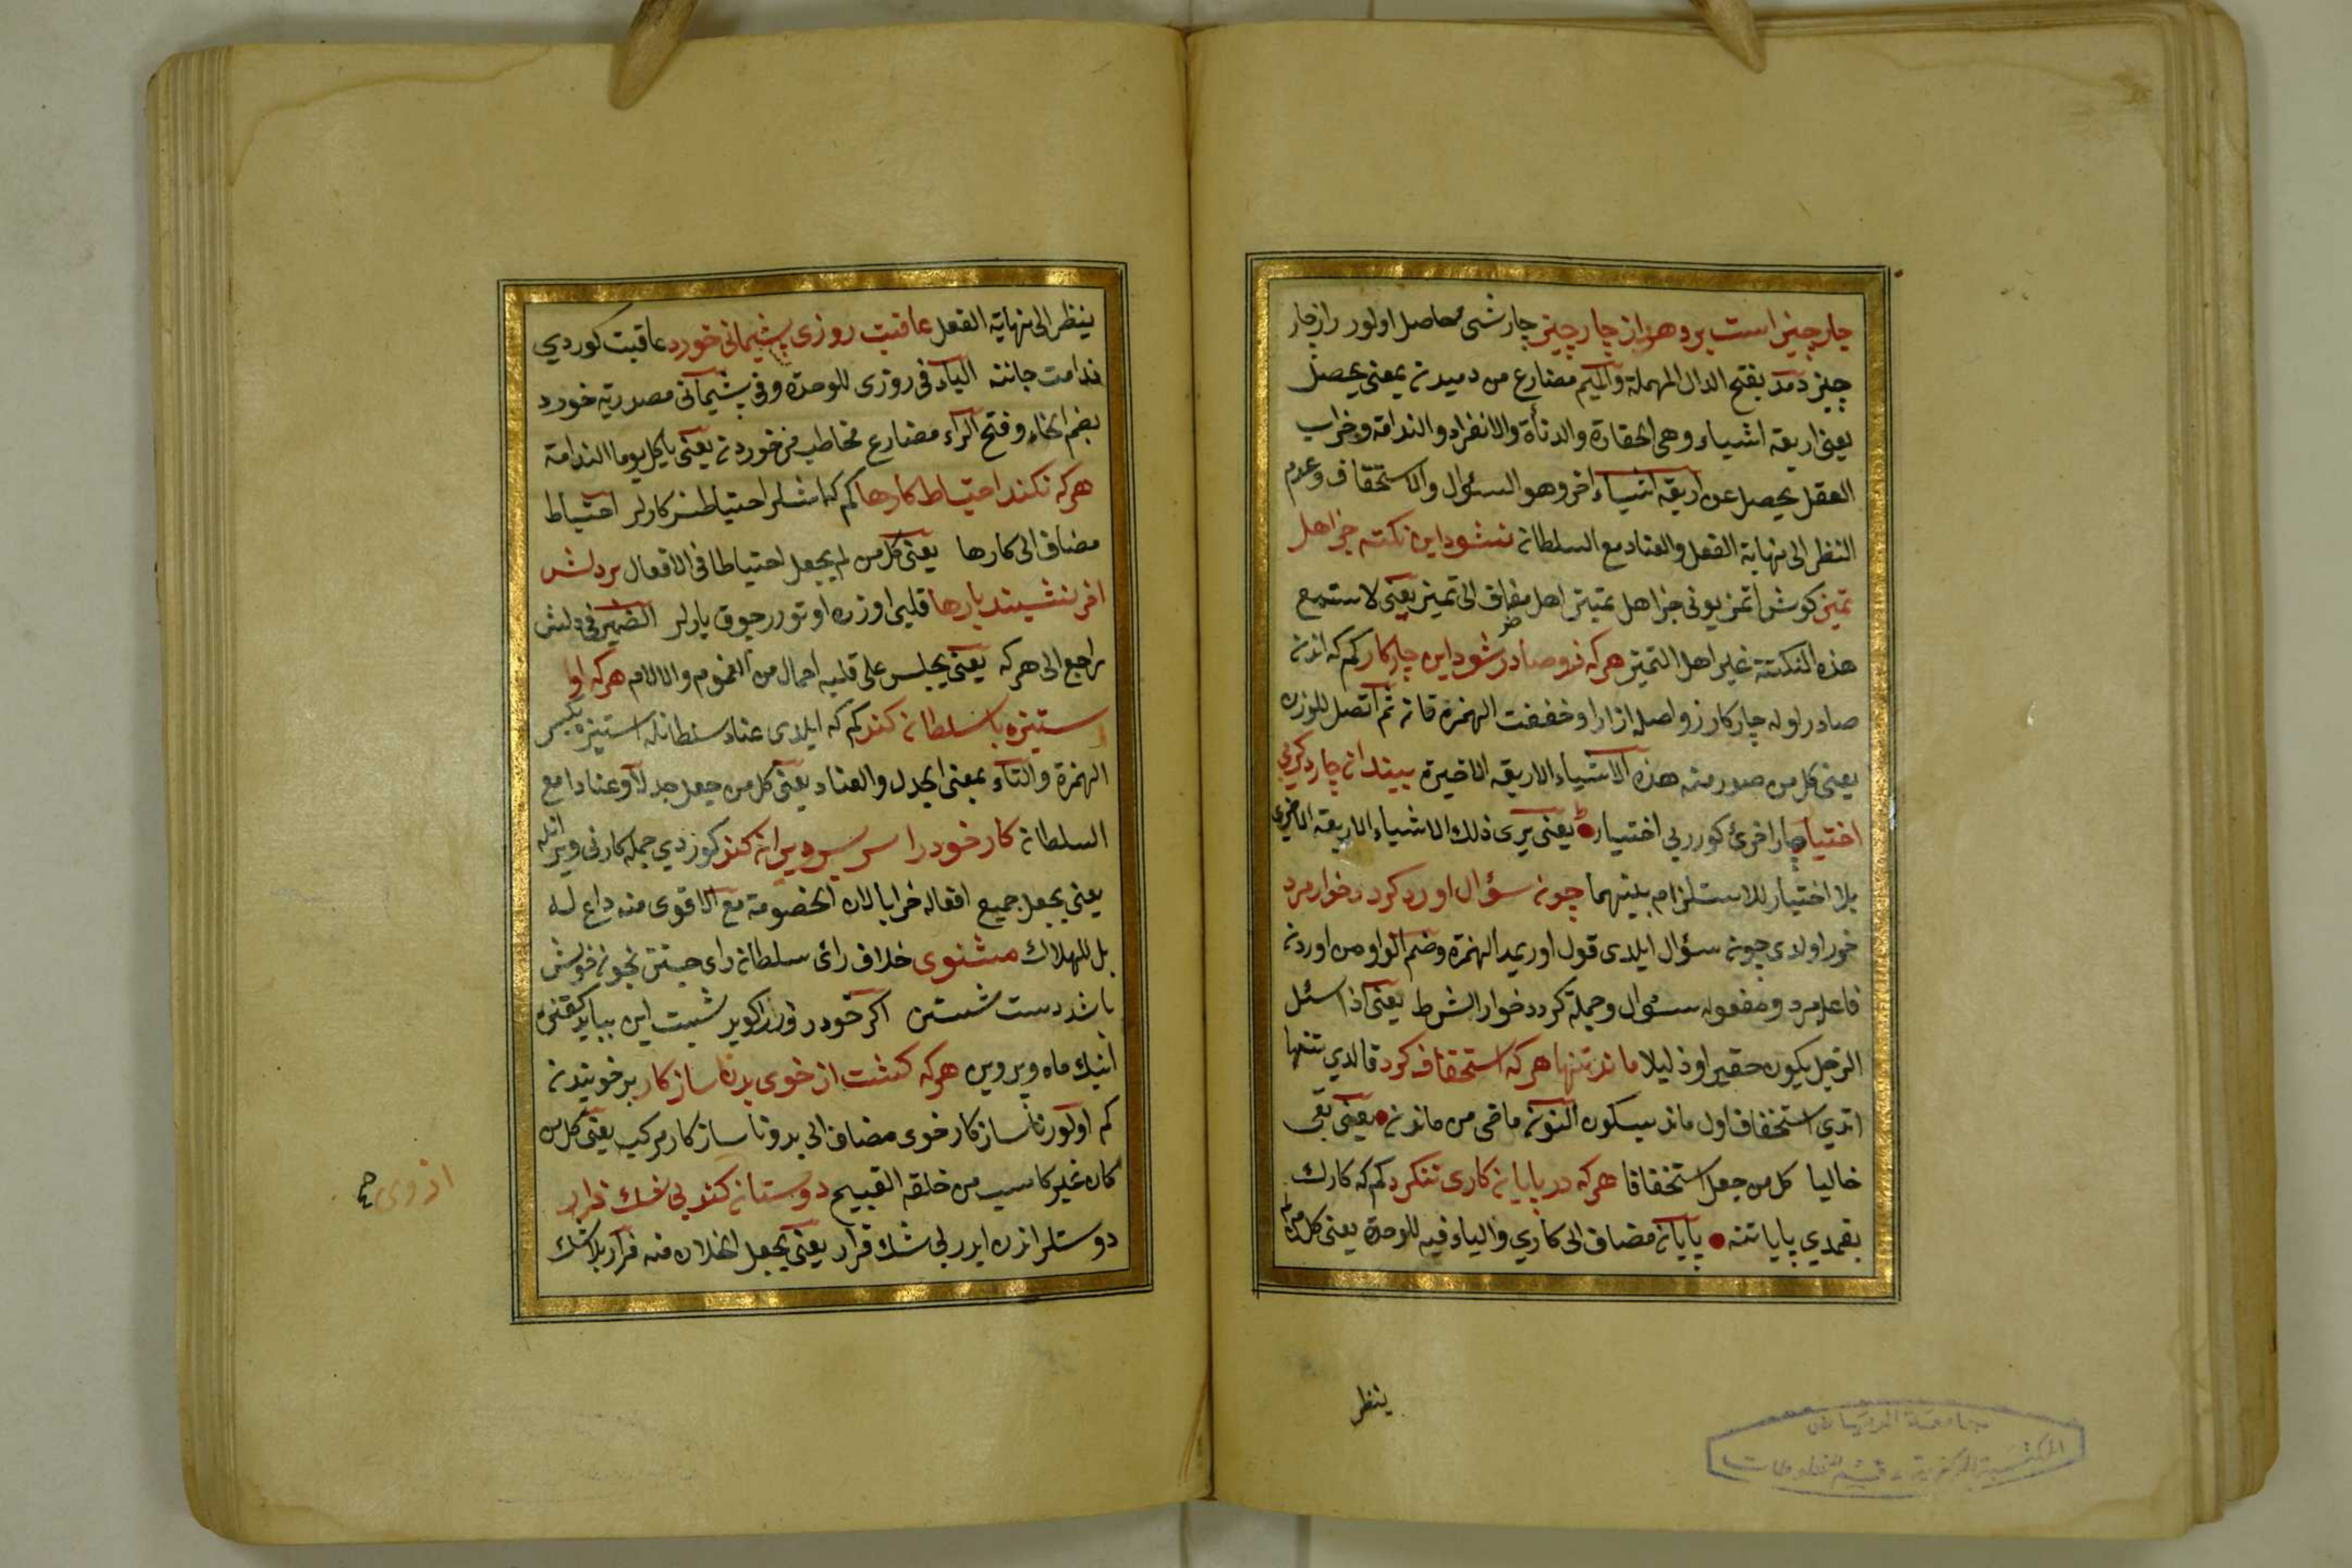 چار چیز است بر دهد از چار چیز چار شی حاصل اولور راز چار
چیز دمد بفتح الدال المهملة والمیم مضارع من دمیدن بمعنی یحصل
یعنی اربعة اشیاء وهی الحقارة والدنأة والانفراد والندامة وخراب
العقل یحصل عن اربعة اشیاء اخر وهو السئوال والاستخفاف وعدم
النظر الی نهایة الفعل والعناد مع السلطان نشنود این نکته جز اهل
تمیز کوش اتمز بونی جز اهل تمییز اهل مضاف الی تمیز یعنی لا ستمع
هذه النکتة غیر اهل التمیز هرکه زو صادر شود این چار کار کم که اندن
صادر اوله چار کار زو اصله از او وخففت الهمزة فان ثم اتصل للوزن
یعنی کل من صدر منه هذه الاشیاء الاربعة الاخیرة بیند ان چار دکر بی
اختیار چار اخرئ کورر بی اختیار یعنی یری ذلک الاشیاء الاربعة الاخری
بلا اختیار للاستلزام بینهما چون سؤال اورد کردد خوار مرد
خور اولدی چون سؤال ایلدی قول اور بمد الهمزة وضم الواو من اوردن
فاعله مرد ومفعوله سئوال وجملة کردد خوار الشرط یعنی اذا سئل
الرجل یکون حقیرا وذلیلا ماند تنها هرکه استخفاف کرد قالدی تنها
اتدی استخفاف اول ماند بسکون النون ماضی من ماندن یعنی بقی
خالیا کل من جعل استخفافا هرکه در پایان کاری ننکرد کم که کارک
بقمدی پایاننه پایان مضاف الی کاری والیاء فیه للوحدة یعنی کل من لم
ینظر
جامعة الریاض
المکتبة المرکزیة - قسم المخطوطات
ینظر الی نهایة الفعل عاقبت روزی پشیمانی خورد عاقبت کور دی
ندامت جاننه الیاء فی روزی للوحدة وفی پشیمانی مصدریة خورد
بضم الخاء وفتح الراء مضارع مخاطب من خوردن یعنی یاکل یوما الندامة
هرکه نکند احتیاط کارها کم که اشلر احتیاطسز کارلر احتیاط
مضاف الی کارها یعنی کل من لم یجعل احتیاطا فی الافعال بر دلش
اخر نشیند بارها قلبی اوزره اوتورر چوق یارلر الضمیر فی دلش
راجع الی هرکه یعنی یجلس علی قلبه احمال من الغموم والالام هرکه او
استیزه با سلطان کند کم که ایلدی عناد سلطانله استیزه بکسر
الهمزة والتاء بمعنی الجدل والعناد یعنی کل من جعل جدلا وعنادا مع
السلطان کار خود را سر بسر ویران کند کوزدی جمله کارنی ویر انله
یعنی یجعل جمیع افعاله خرابا لان الخصومة مع الاقوی منه داع له
بل للهلاک مثنوی خلاف رائ سلطان رای جستن بخون خویش
باشد دست شستن اکر خود روز را کوید شبست این بباید کفتن
اینک ماه وپروین هرکه کشت از خوی بد نا ساز کار بد خویندن
کم اولور نا ساز کار خوی مضاف الی بد ونا ساز کار مرکب یعنی کل من
کان غیر کاسب من خلقه القبیح دوستان کند بی شک فرار
دوستلر اندن ایدر بی شک فرار یعنی یجعل الخلان منه فرار بلا شک
از وی